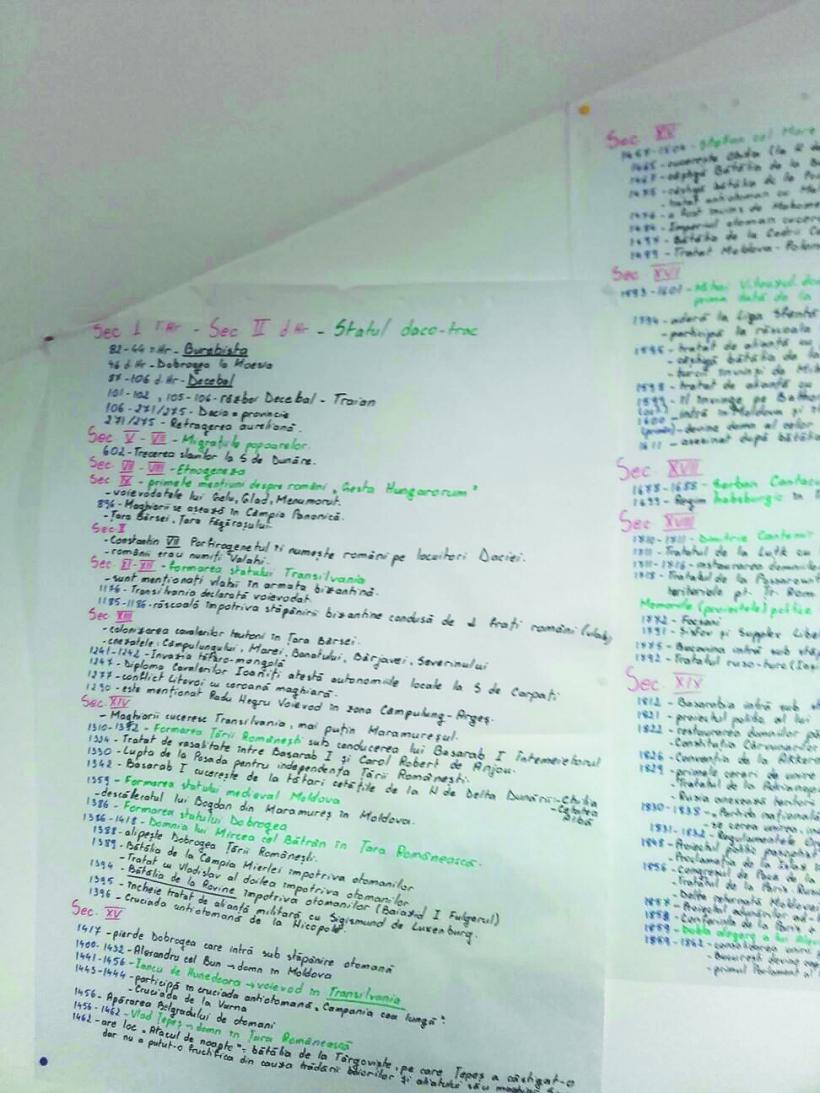 Sec I î.Hr - Sec II d.Hr - Statul daco-trac
82-44 î.Hr - Burebista
46 d.Hr - Dobrogea la Moesia
87-106 d.Hr - Decebal
101-102, 105-106 - război Decebal - Traian
106-271/275 - Dacia = provincie
271/275 - Retragerea aureliană.
Sec V - VII - Migrațiile popoarelor.
602 - Trecerea slavilor la S de Dunăre.
Sec VII - VIII - Etnogeneza
Sec IX - primele mențiuni despre români „Gesta Hungarorum"
- voievodatele lui Gelu, Glad, Menumorut.
896 - Maghiarii se așează în Câmpia Panonică.
- Țara Bârsei, Țara Făgărașului.
Sec X
- Constantin VII Porfirogenetul îi numește români pe locuitorii Daciei.
- românii erau numiți Valahi.
Sec. XI - XII - formarea statului Transilvania
- sunt menționați vlahii în armata bizantină.
1176 - Transilvania declarată voievodat.
1185-1186 - răscoală împotriva stăpânirii bizantine condusă de 2 frați români (vlahi)
Sec XIII
- colonizarea cavalerilor teutoni în Țara Bârsei.
- cnezatele: Câmpulungului, Marei, Banatului, Bârjavei, Severinului
1241-1242 - Invazia tătaro-mongolă
1247 - Diploma Cavalerilor Ioaniți atestă autonomiile locale la S de Carpați
1277 - conflict Litovoi cu coroana maghiară.
1290 - este menționat Radu Negru Voievod în zona Câmpulung-Argeș.
Sec XIV
- Maghiarii cuceresc Transilvania, mai puțin Maramureșul.
1310-1352 - Formarea Țării Românești sub conducerea lui Basarab I Întemeietorul
1324 - Tratat de vasalitate între Basarab I și Carol Robert de Anjou.
1330 - Lupta de la Posada pentru independența Țării Românești.
1342 - Basarab I cucerește de la tătari cetățile de la N de Delta Dunării: - Chilia
- Cetatea
Albă
1359 - Formarea statului medieval Moldova
- descălecatul lui Bogdan din Maramureș în Moldova.
1386 - Formarea statului Dobrogea
1386-1418 - Domnia lui Mircea cel Bătrân în Țara Românească.
1388 - alipește Dobrogea Țării Românești.
1389 - Bătălia de la Câmpia Mierlei împotriva otomanilor
- Tratat cu Vladislav al doilea împotriva otomanilor
1394 - Bătălia de la Rovine împotriva otomanilor (Baiazid I Fulgerul)
1395 - încheie tratat de alianță militară cu Sigismund de Luxenburg.
1396 - Cruciada antiotomană de la Nicopole
Sec. XV
1417 - pierde Dobrogea care intră sub stăpânire otomană
1400-1432 - Alexandru cel Bun → domn în Moldova
1441-1456 - Iancu de Hunedoara → voievod în Transilvania
1443-1444 - participă în cruciada antiotomană „Campania cea lungă".
- Cruciada de la Varna
1456 - Apărarea Belgradului de otomani
1456-1462 - Vlad Țepeș → domn în Țara Românească
1462 - are loc „Atacul de noapte": bătălia de la Târgoviște, pe care Țepeș a câștigat-o
dar nu a putut-o fructifica din cauza trădării boierilor și aliatului său
Sec XV
1457-1504 - Ștefan cel Mare
1465 - cucerește
1467 - câștigă Bătălia de la
1475 - câștigă bătălia de la
- tratat antiotoman cu
1476 - a fost învins de
1484 - Imperiul otoman
1497 - Bătălia de la Codrii
1499 - Tratat Moldova -
Sec XVI
1593-1601 - Mihai Viteazul
prima dată de la
1594 - aderă la Liga Sfântă
- participă la răscoala
1595 - tratat de alianță cu
- câștigă bătălia de la
- turcii învinși de
1598 - tratat de alianță cu
1599 - îl învinge pe
1600 - intră în Moldova și
- devine domn al celor
1611 - asasinat după
Sec XVII
1678-1688 - Șerban
1699 - Regim habsburgic în
Sec XVIII
- Dimitrie Cantemir
1711 - Tratatul de la Luțk cu
1711-1716 - instaurarea
1718 - Tratatul de la
teritoriale pt. Ț. Rom
Memoriile (proiectele) politice
1772 - Focșani
1791 - Șiștov și Supplex
1775 - Bucovina intră sub
1792 - Tratatul ruso-turc
Sec. XIX
1812 - Basarabia intră sub
1821 - proiectul politic al lui
1822 - restaurarea domniilor
- Constituția Cărvunarilor
1826 - Convenția de la Akkerman
1829 - primele cereri de unire
- Tratatul de la
- Rusia anexează teritorii
1830-1838 - „Partida națională
- se cerea unirea
1831-1832 - Regulamentele
1848 - Proiectul politic
- Proclamația de la Islaz
1856 - Congresul de Pace de la
- Tratatul de la Paris
- Delta returnată Moldovei
1857 - Proiectul adunărilor ad-
1858 - Conferința de la Paris
1859 - Dubla alegere a lui
1859-1862 - consolidarea unirii
- București devine
- primul Parlament al